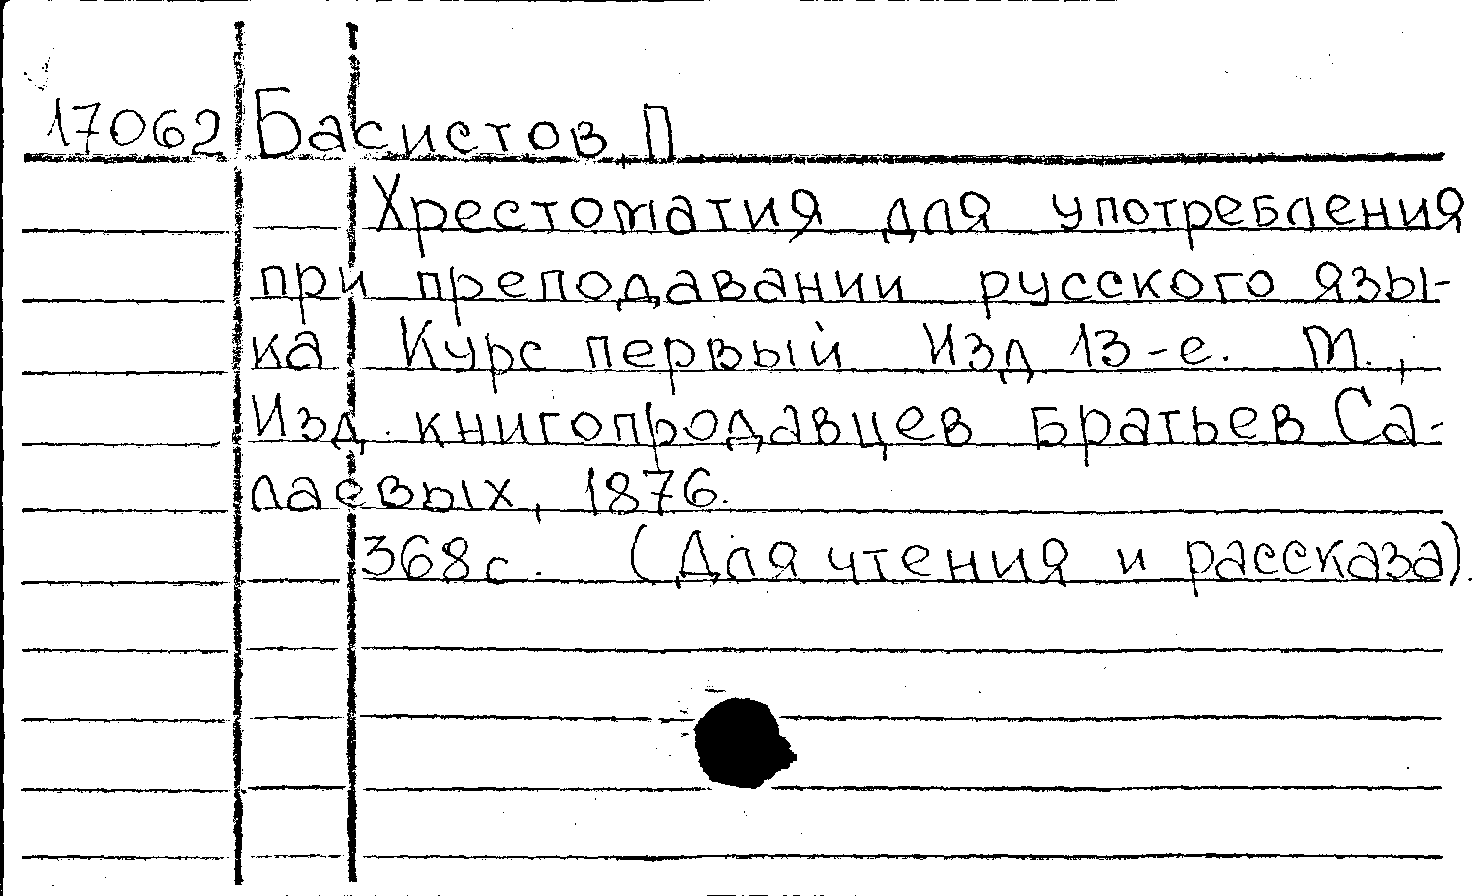 17062 Басистов, П
Хрестоматия для употребления
при преподавании русского язы-
ка Курс первый Изд 13-е. М.,
Изд. книгопродавцев братьев Са-
лаевых, 1876.
368 с. (Для чтения и рассказа).